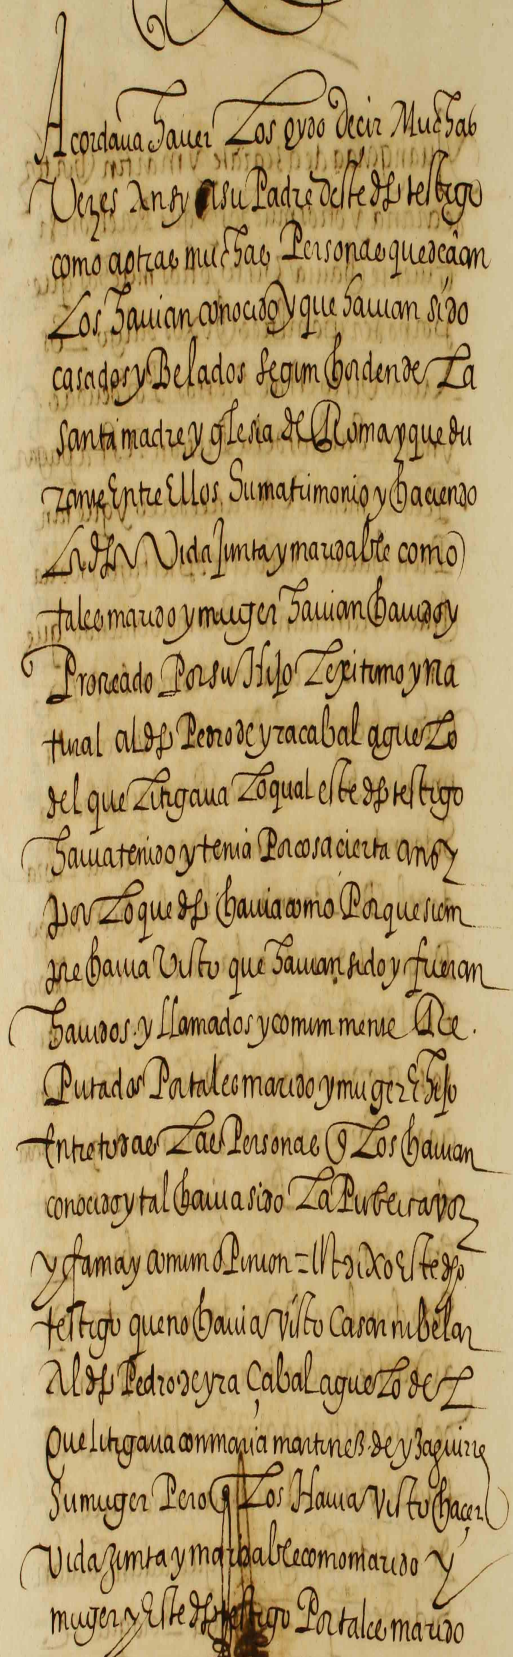 Acordava haver Los oydo decir Muchas
Vezes Ansy a su Padre deste dho testigo
como a otras muchas Personas que deçian
Los havian conocido y que havian sido
casados y Belados segun horden de La
santa madre yglesia de Roma y que du
rante Entre Ellos Su matrimonio y haciendo
La dha Vida Junta y maridable como
tales marido y muger havian havido y
Procreado Por su Hijo Lexitimo y na
tural al dho Pedro de yracabal aguelo
del que Litigava Lo qual este dho testigo
havia tenido y tenia Por cosa cierta ansy
por Lo que dho havia como Porque siem
pre havia Visto que havian sido y fueran
havidos y LLamados y comunmente Re
Putados Por tales marido y muger E hijo
Entre todas Las Personas q Los havian
conocido y tal havia sido La Publica voz
y fama y comun oPinion = dixo Este dho
testigo que no havia visto Casar ni belar
Al dho Pedro de yra Çabal aguelo del
Que Litigava con maria martinez de yzaguirre
Su muger Pero q Los Havia Visto haçer
Vida Junta y maridable como marido y
muger y Este dho testigo Por tales marido